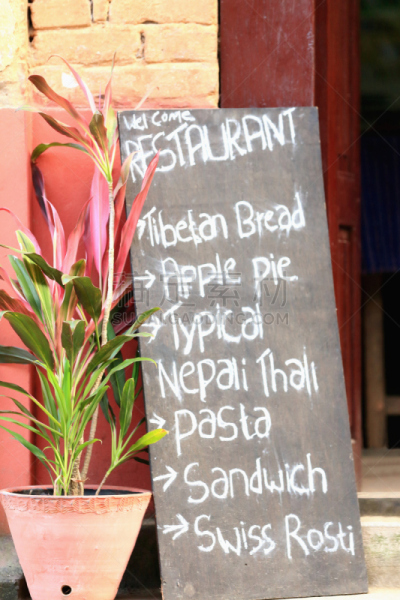 Welcome
RESTAURANT
→Tibetan Bread
→Apple pie
→Typical
Nepali Thali
→pasta
→Sandwich
→Swiss Rosti